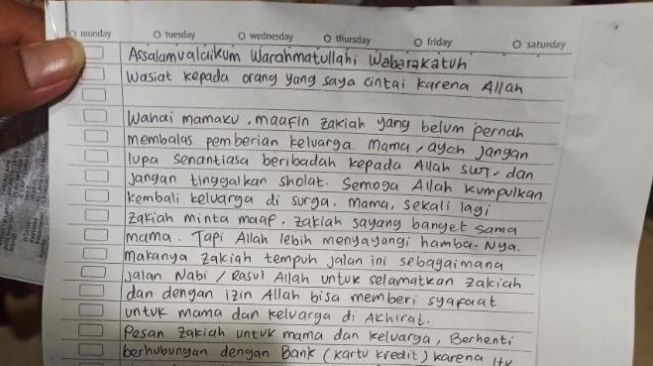 monday tuesday wednesday thursday friday saturday
Assalamualaikum Warahmatullahi Wabarakatuh
Wasiat kepada orang yang saya cintai karena Allah
Wahai mamaku, maafin zakiah yang belum pernah
membalas pemberian keluarga. Mama, ayah jangan
lupa senantiasa beribadah kepada Allah swt, dan
jangan tinggalkan sholat. Semoga Allah kumpulkan
kembali keluarga di surga. mama, sekali lagi
zakiah minta maaf, zakiah sayang banget sama
mama. Tapi Allah lebih menyayangi hamba-Nya.
makanya zakiah tempuh jalan ini sebagaimana
jalan Nabi / Rasul Allah untuk selamatkan zakiah
dan dengan izin Allah bisa memberi syafaat
untuk mama dan keluarga di Akhirat.
Pesan zakiah untuk mama dan keluarga, Berhenti
berhubungan dengan Bank (kartu kredit) karena itu